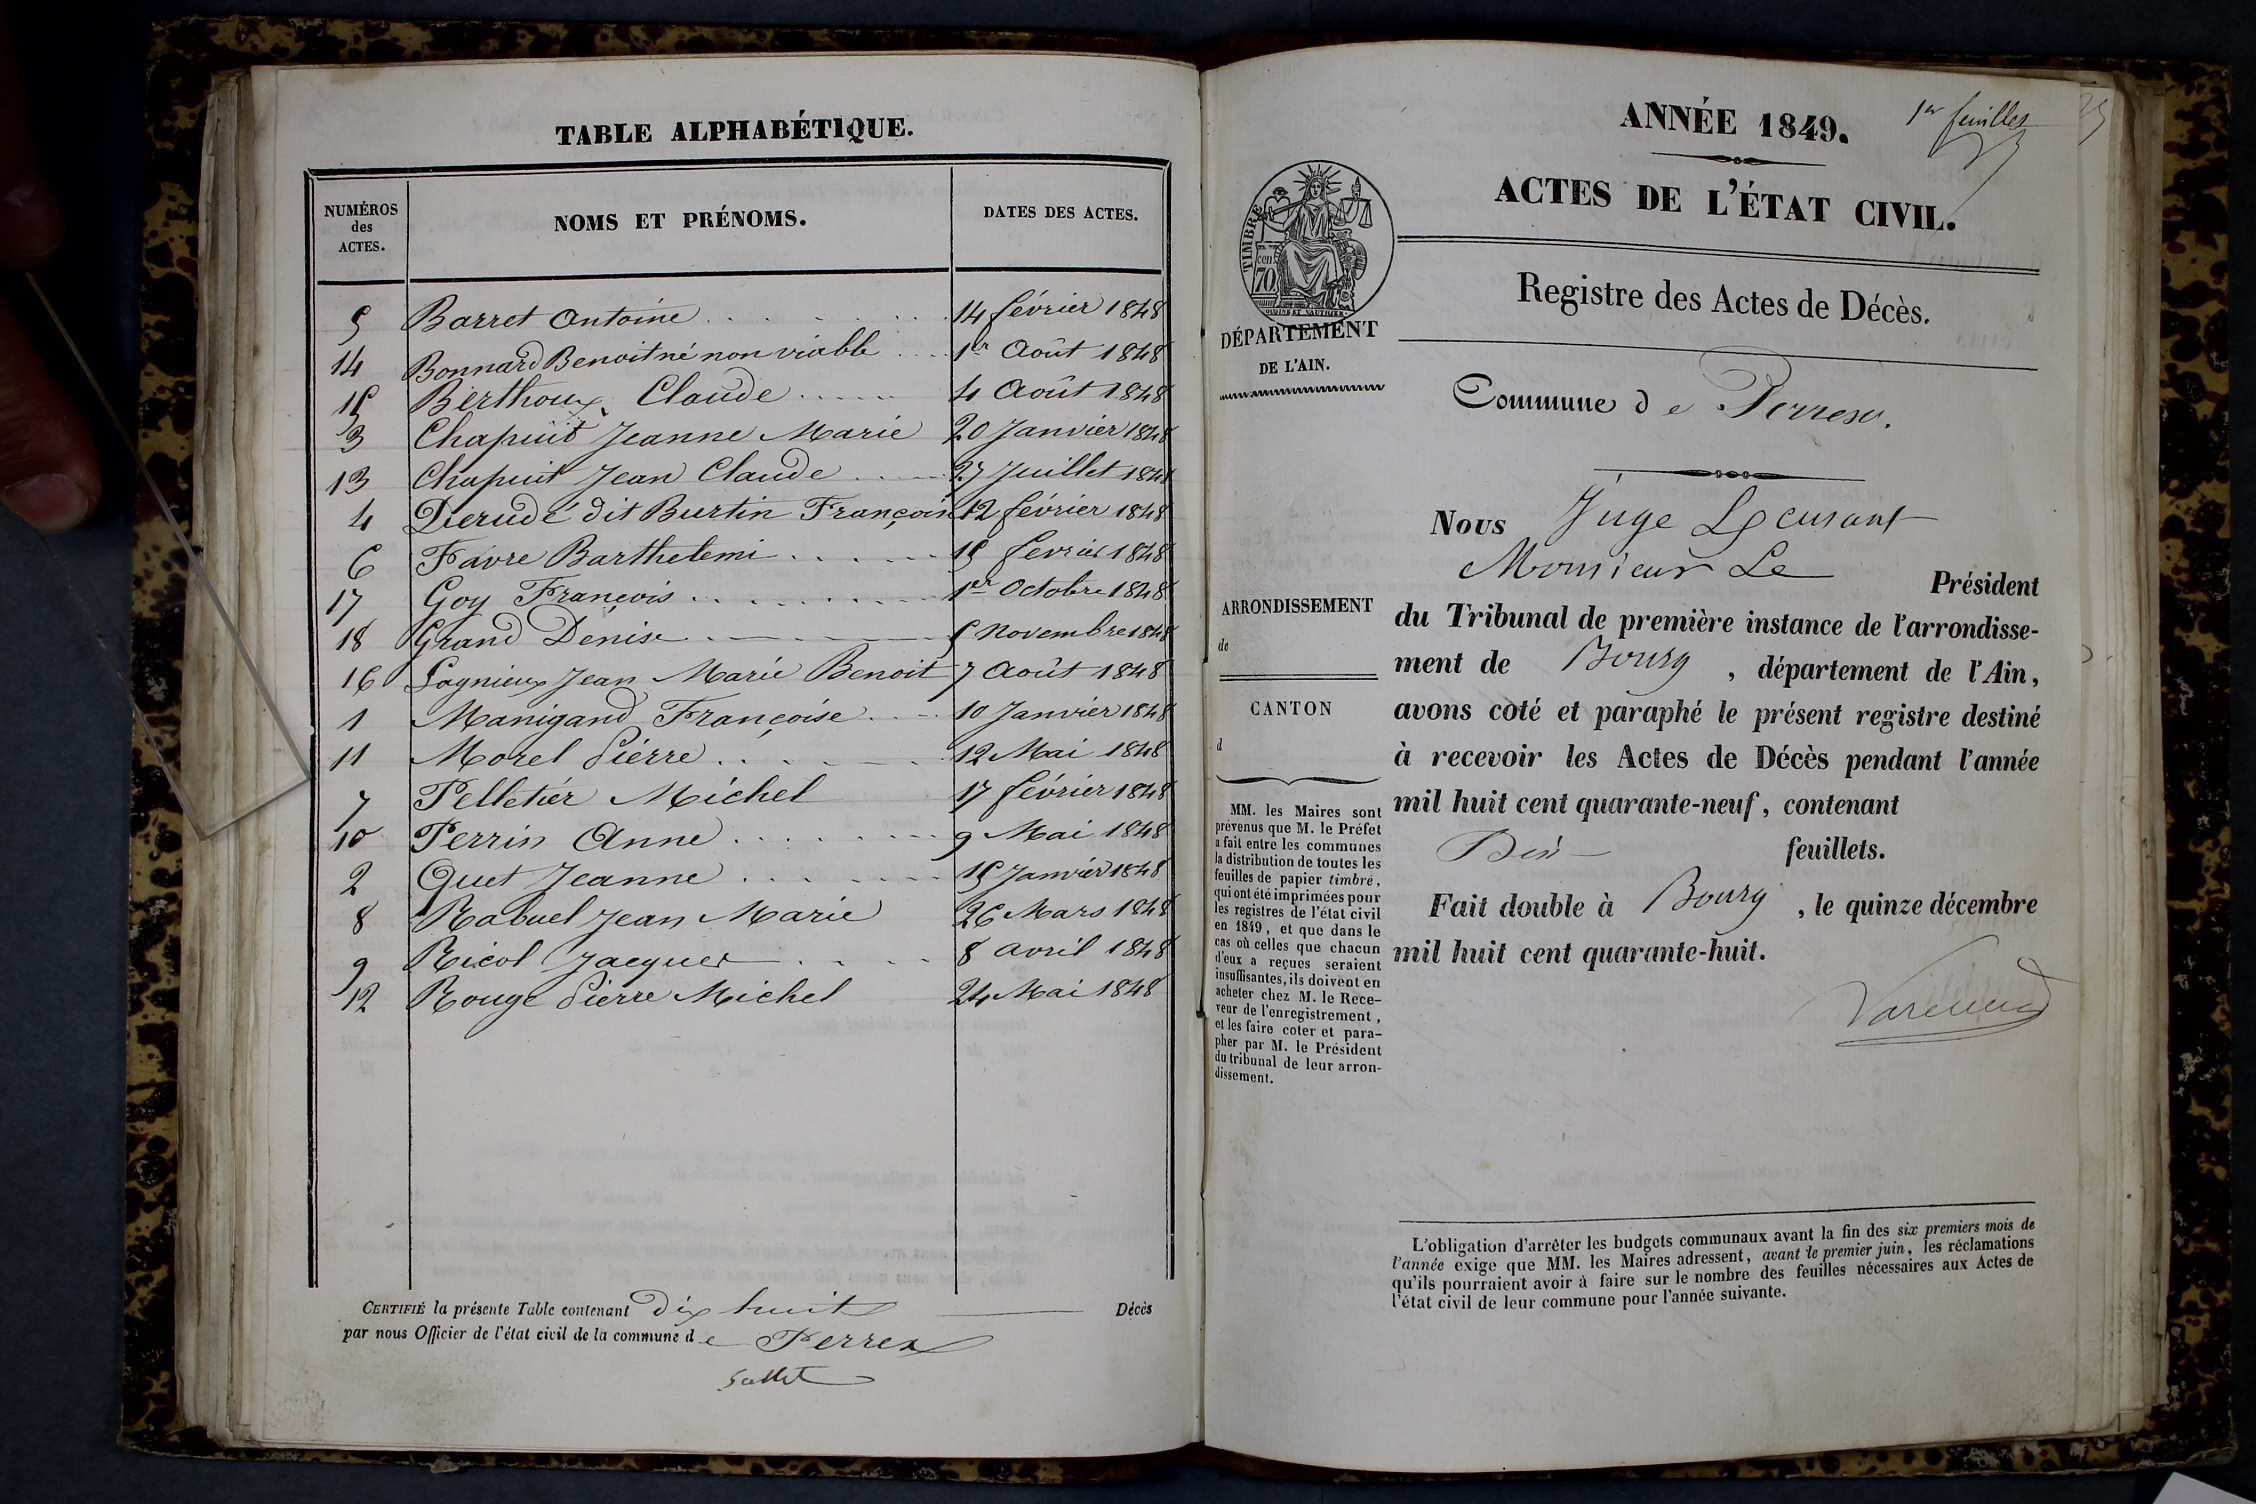 TABLE ALPHABÉTIQUE.
NUMÉROS des ACTES. NOMS ET PRÉNOMS. DATES DES ACTES.
5 Barret Antoine 14 février 1848
14 Bonnard Benoit né non viable 1er Août 1848
15 Berthoux Claude 4 Août 1848
3 Chapuit Jeanne Marie 20 Janvier 1848
13 Chapuit Jean Claude 27 Juillet 1848
4 Derudé dit Burtin François 12 février 1848
6 Favre Barthelemi 15 fevrier 1848
17 Goy François 1er Octobre 1848
18 Grand Denise 5 Novembre 1848
16 Lagnieux Jean Marie Benoit 7 Août 1848
1 Manigand Françoise 10 Janvier 1848
11 Morel Pierre 12 Mai 1848
7 Pelletier Michel 17 février 1848
10 Perrin Anne 9 Mai 1848
2 Quet Jeanne 15 Janvier 1848
8 Rabuel Jean Marie 26 Mars 1848
9 Ricol Jacques 8 avril 1848
12 Rouge Pierre Michel 24 Mai 1848
CERTIFIÉ la présente Table contenant Dix huit Décès
par nous Officier de l'état civil de la commune de Perrex
1er feuilles
ANNÉE 1849.
ACTES DE L'ÉTAT CIVIL.
Registre des Actes de Décès.
TIMBRE
cen
70
DÉPARTEMENT
DE L'AIN.
Commune de Perrex.
Nous Juge
Monsieur Le Président
du Tribunal de première instance de l'arrondisse-
ment de Bourg, département de l'Ain,
avons coté et paraphé le présent registre destiné
à recevoir les Actes de Décès pendant l'année
mil huit cent quarante-neuf, contenant
feuillets.
Fait double à Bourg, le quinze décembre
mil huit cent quarante-huit.
ARRONDISSEMENT
de
CANTON
d
MM. les Maires sont
prévenus que M. le Préfet
a fait entre les communes
la distribution de toutes les
feuilles de papier timbré,
qui ont été imprimées pour
les registres de l'état civil
en 1849, et que dans le
cas où celles que chacun
d'eux a reçues seraient
insuffisantes, ils doivent en
acheter chez M. le Rece-
veur de l'enregistrement,
et les faire coter et para-
pher par M. le Président
du tribunal de leur arron-
dissement.
L'obligation d'arrêter les budgets communaux avant la fin des six premiers mois de
l'année exige que MM. les Maires adressent, avant le premier juin, les réclamations
qu'ils pourraient avoir à faire sur le nombre des feuilles nécessaires aux Actes de
l'état civil de leur commune pour l'année suivante.